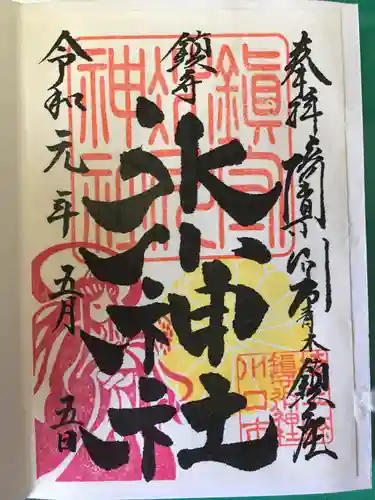 奉拝 埼玉県川口市青木鎮座
鎮守
氷川神社
令和元年 五月 五日
鎮守
氷川
神社
川口市